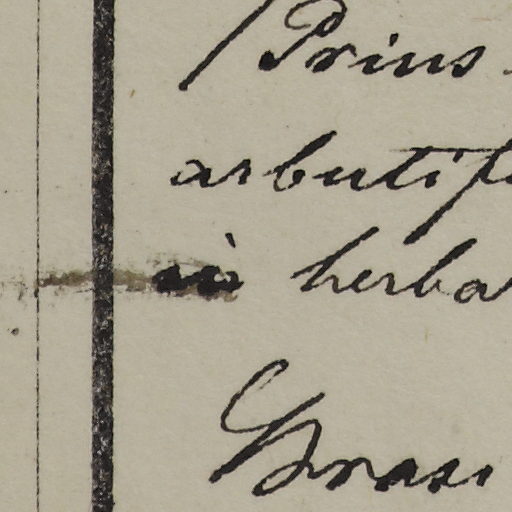 Prius
arbutif
in herba
Bras